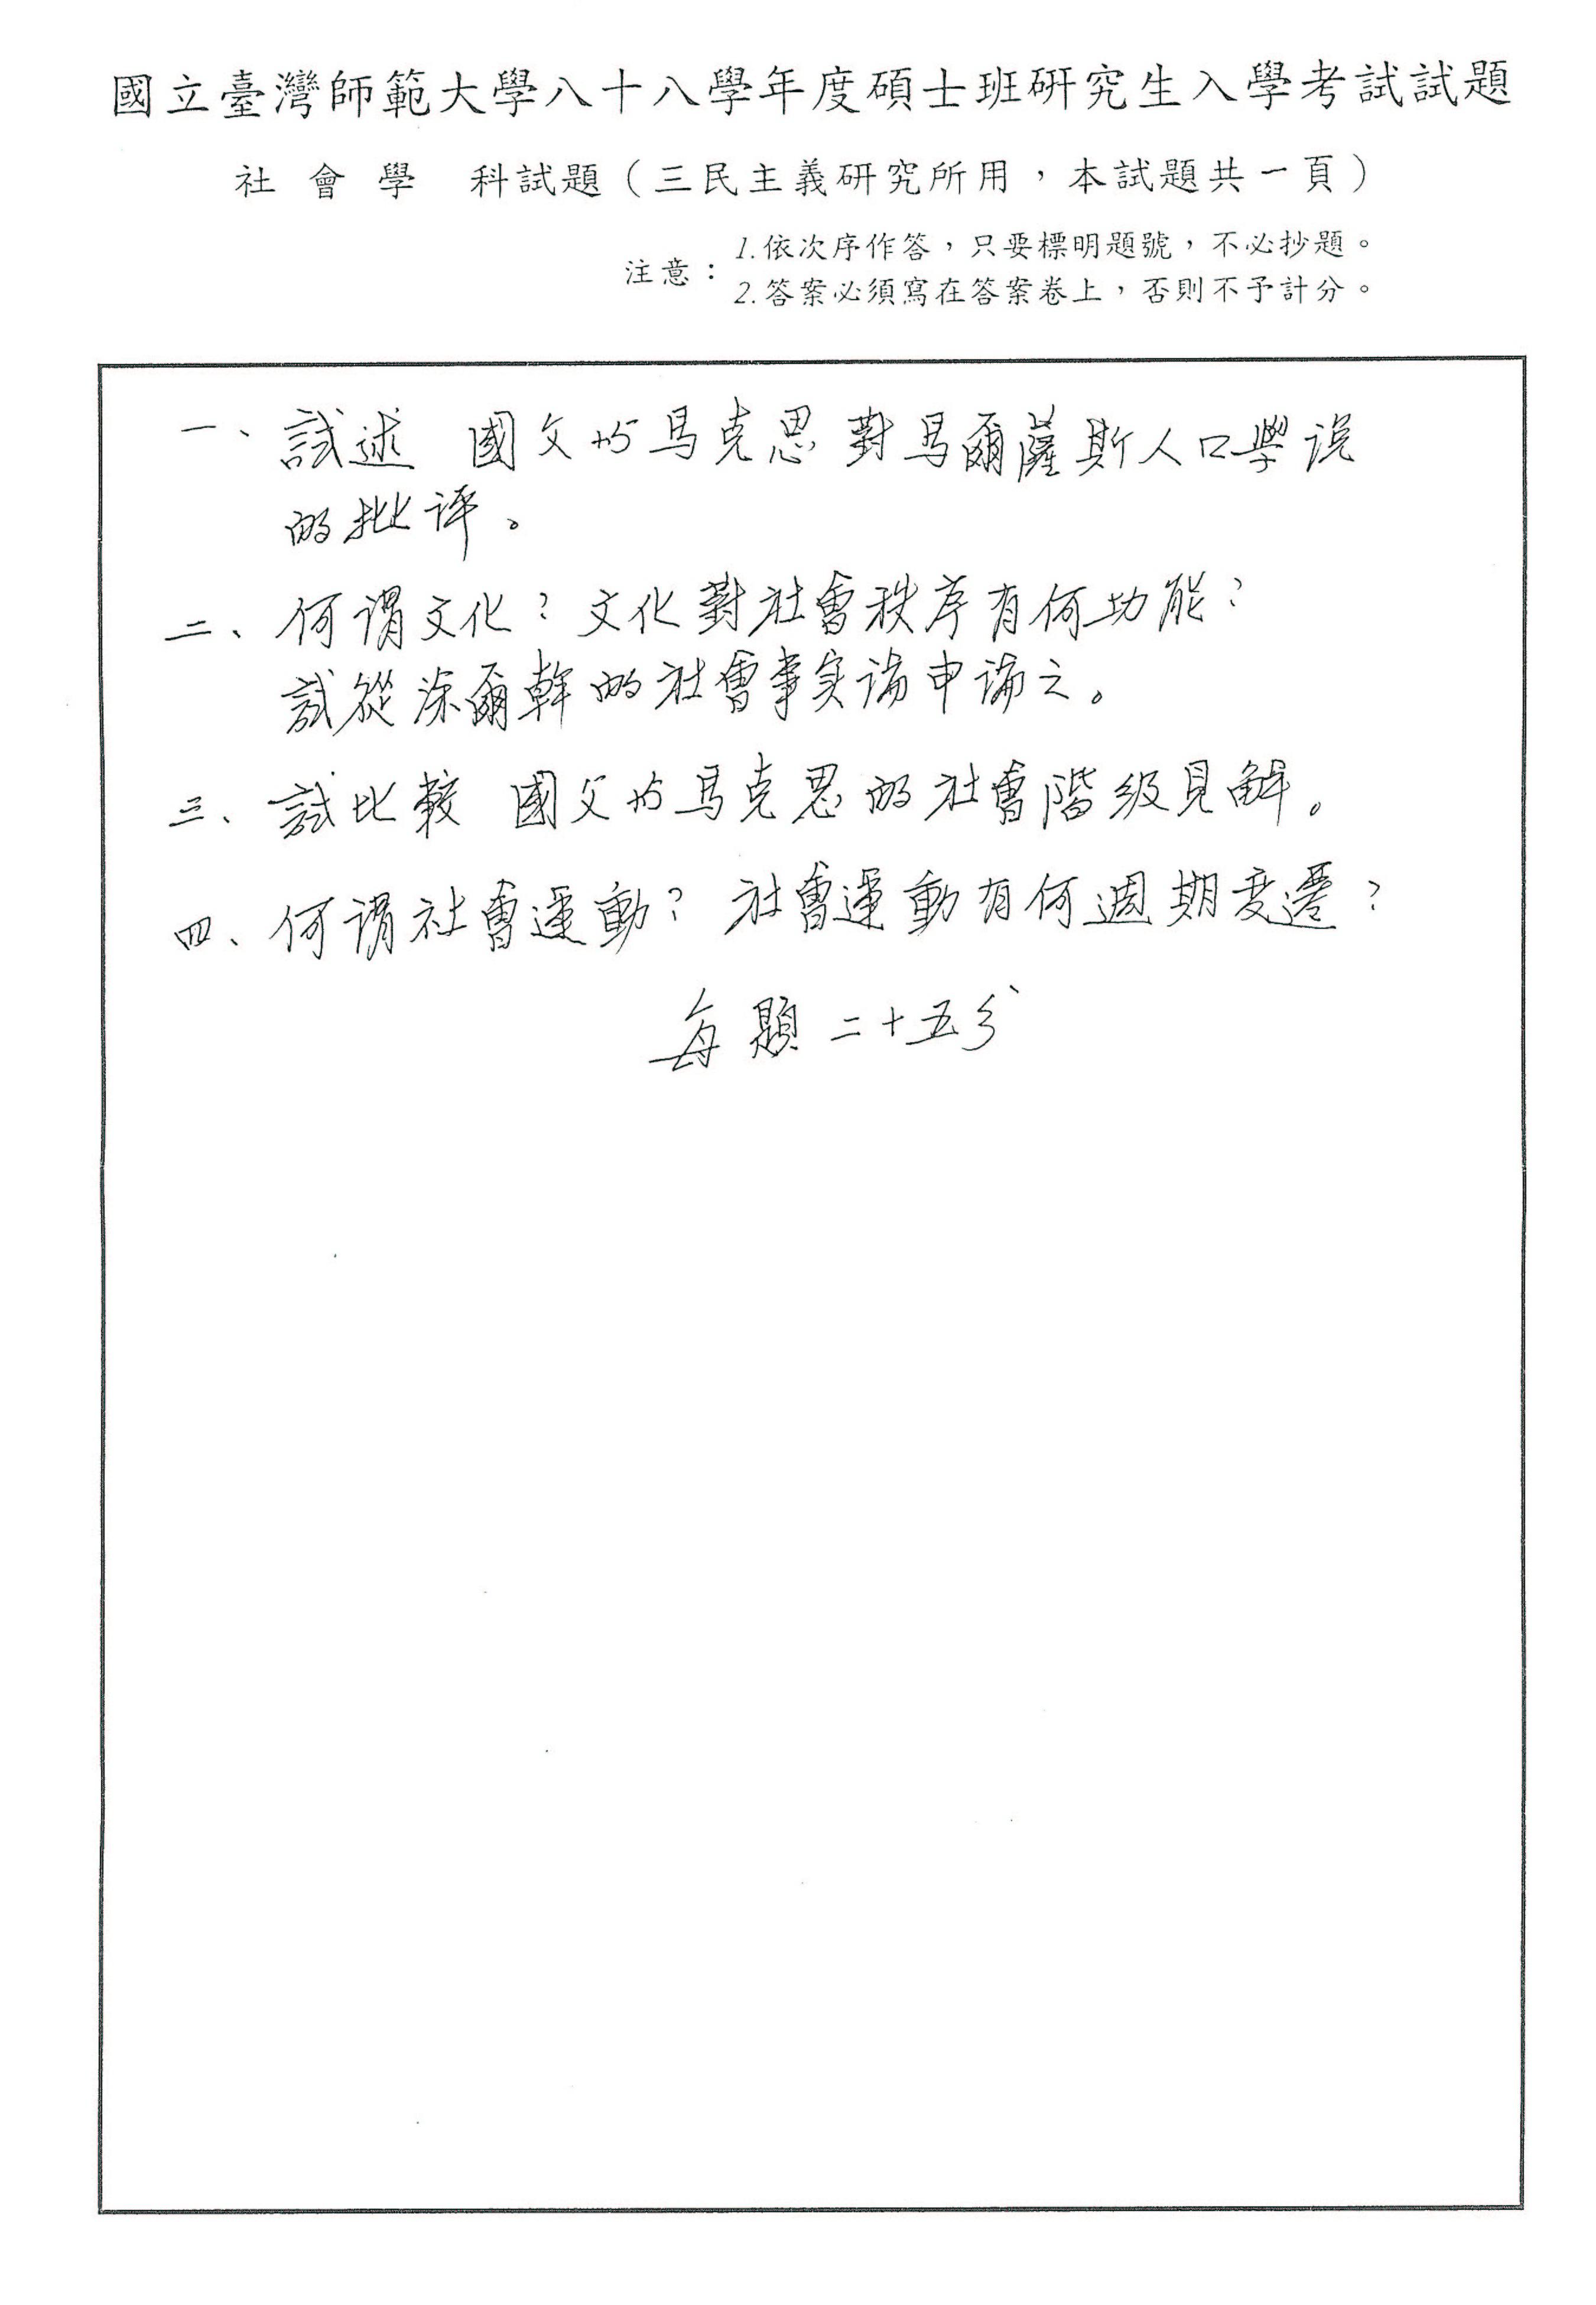 國立臺灣師範大學八十八學年度碩士班研究生入學考試試題
社會學 科試題（三民主義研究所用，本試題共一頁）
注意：
1.依次序作答，只要標明題號，不必抄題。
2.答案必須寫在答案卷上，否則不予計分。
一、試述 國父与馬克思對馬爾薩斯人口學説
的批评。
二、何謂文化？文化對社會秩序有何功能？
試從涂爾幹的社會事实論申論之。
三、試比較 國父与馬克思的社會階级見解。
四、何謂社會運動？社會運動有何週期变遷？
每題二十五分